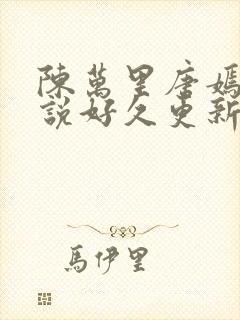 陳萬里唐嫣
說好久更新
馬伊里